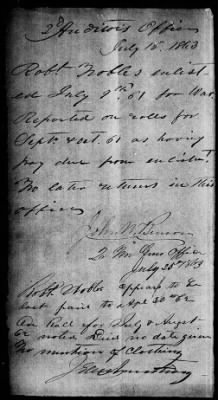 2d Auditors Office
July 15. 1863
Robt Nobles enlist-
ed July 9th 61 for War
Reported on rolls for
Sept & Oct. 61 as having
pay due from enlistmt
No later returns in this
office
2d Gen Office
July 28th 1863
Robth Nobles appears to be
last paid to Apl 30th 62
On Roll for July & Augst
62 noted Died no date given
No mention of Clothing